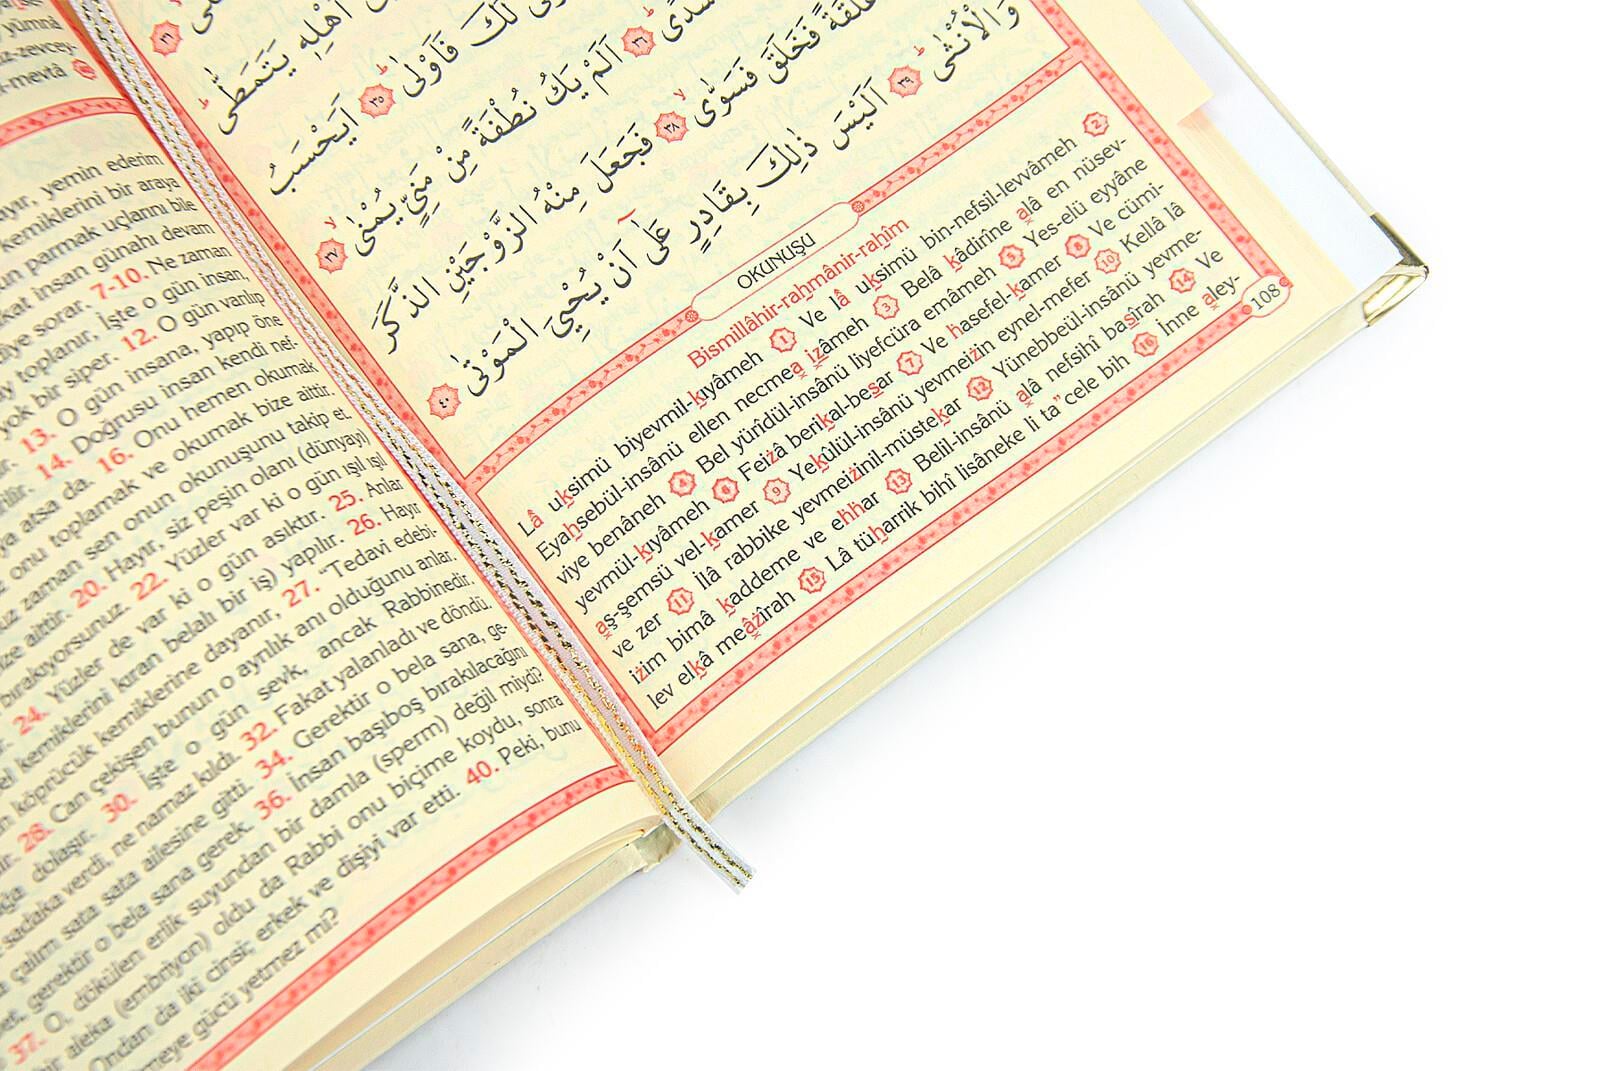 yümnâ
iz-zevcey-
-mevtâ ٤٠
ayır, yemin ederim
kemiklerini bir araya
un parmak uçlarını bile
kat insan günahı devam
diye sorar. 7-10. Ne zaman
ay toplanır, İşte o gün insan,
yok bir siper. 12. O gün varılıp
13. O gün insana, yapıp öne
rilir. 14. Doğrusu insan kendi nef-
ya atsa da. 16. Onu hemen okumak
z onu toplamak ve okumak bize aittir.
uz zaman sen onun okunuşunu takip et.
ize aittir. 20. Hayır, siz peşin olanı (dünyayı)
bırakıyorsunuz. 22. Yüzler var ki o gün ışıl ışıl
24. Yüzler de var ki o gün asıktır. 25. Anlar
el kemiklerini kıran belalı bir iş) yapılır. 26. Hayır
köprücük kemiklerine dayanır, 27. "Tedavi edebi-
ir. 28. Can çekişen bunun o ayrılık anı olduğunu anlar.
ğa dolaşır. 30. İşte o gün sevk, ancak Rabbinedir.
sadaka verdi, ne namaz kıldı. 32. Fakat yalanladı ve döndü.
çalım sata sata ailesine gitti. 34. Gerektir o bela sana, ge-
et, gerektir o bela sana gerek. 36. İnsan başıboş bırakılacağını
37. O, dökülen erlik suyundan bir damla (sperm) değil miydi?
bir aleka (embriyon) oldu da Rabbi onu biçime koydu, sonra
Ondan da iki cinsi; erkek ve dişiyi var etti. 40. Peki, bunu
meye gücü yetmez mi?
اَهْلِه۪ يَتَمَطّٰى
لَكَ فَاَوْلٰى ٣٥ اَيَحْسَبُ
سُدًى ٣٦ اَلَمْ يَكُ نُطْفَةً مِنْ مَنِيٍّ يُمْنٰى ٣٧
عَلَقَةً فَخَلَقَ فَسَوّٰى ٣٨ فَجَعَلَ مِنْهُ الزَّوْجَيْنِ الذَّكَرَ
وَالْاُنْثٰى ٣٩ اَلَيْسَ ذٰلِكَ بِقَادِرٍ عَلٰٓى اَنْ يُحْيِيَ الْمَوْتٰى ٤٠
OKUNUŞU
Bismillâhir-rahmânir-rahîm
Lâ uksimü biyevmil-kıyâmeh 1 Ve lâ uksimü bin-nefsil-levvâmeh 2
Eyahsebül-insânü ellen necmea izâmeh 3 Belâ kâdirîne alâ en nüsev-
viye benâneh 4 Bel yürîdül-insânü liyefcüra emâmeh 5 Yes-elü eyyâne
yevmül-kıyâmeh 6 Feiza berikal-besar 7 Ve hasefel-kamer 8 Ve cümi-
aş-şemsü vel-kamer 9 Yekûlül-insânü yevmeizin eynel-mefer 10 Kellâ lâ
ve zer 11 İlâ rabbike yevmeizinil-müstekar 12 Yünebbeül-insânü yevme-
izim bimâ kaddeme ve ehhar 13 Belil-insânü alâ nefsihî basîrah 14 Ve
lev elkâ meâzîrah 15 Lâ tüharrik bihî lisâneke li ta"cele bih 16 İnne aley-
108